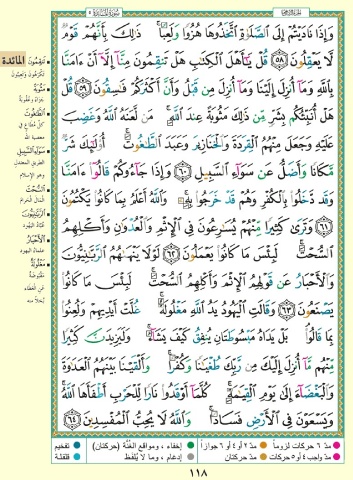 سُورَةُ المَائِدَة ٥
وَإِذَا نَادَيْتُمْ إِلَى ٱلصَّلَوٰةِ ٱتَّخَذُوهَا هُزُوًا وَلَعِبًا ۚ ذَٰلِكَ بِأَنَّهُمْ قَوْمٌ
لَّا يَعْقِلُونَ ٥٨ قُلْ يَٰٓأَهْلَ ٱلْكِتَٰبِ هَلْ تَنقِمُونَ مِنَّآ إِلَّآ أَنْ ءَامَنَّا
بِٱللَّهِ وَمَآ أُنزِلَ إِلَيْنَا وَمَآ أُنزِلَ مِن قَبْلُ وَأَنَّ أَكْثَرَكُمْ فَٰسِقُونَ ٥٩ قُلْ
هَلْ أُنَبِّئُكُم بِشَرٍّ مِّن ذَٰلِكَ مَثُوبَةً عِندَ ٱللَّهِ ۚ مَن لَّعَنَهُ ٱللَّهُ وَغَضِبَ
عَلَيْهِ وَجَعَلَ مِنْهُمُ ٱلْقِرَدَةَ وَٱلْخَنَازِيرَ وَعَبَدَ ٱلطَّٰغُوتَ ۚ أُو۟لَٰٓئِكَ شَرٌّ
مَّكَانًا وَأَضَلُّ عَن سَوَآءِ ٱلسَّبِيلِ ٦٠ وَإِذَا جَآءُوكُمْ قَالُوٓا۟ ءَامَنَّا
وَقَد دَّخَلُوا۟ بِٱلْكُفْرِ وَهُمْ قَدْ خَرَجُوا۟ بِهِۦ ۚ وَٱللَّهُ أَعْلَمُ بِمَا كَانُوا۟ يَكْتُمُونَ
٦١ وَتَرَىٰ كَثِيرًا مِّنْهُمْ يُسَٰرِعُونَ فِى ٱلْإِثْمِ وَٱلْعُدْوَٰنِ وَأَكْلِهِمُ
ٱلسُّحْتَ ۚ لَبِئْسَ مَا كَانُوا۟ يَعْمَلُونَ ٦٢ لَوْلَا يَنْهَىٰهُمُ ٱلرَّبَّٰنِيُّونَ
وَٱلْأَحْبَارُ عَن قَوْلِهِمُ ٱلْإِثْمَ وَأَكْلِهِمُ ٱلسُّحْتَ ۚ لَبِئْسَ مَا كَانُوا۟
يَصْنَعُونَ ٦٣ وَقَالَتِ ٱلْيَهُودُ يَدُ ٱللَّهِ مَغْلُولَةٌ ۚ غُلَّتْ أَيْدِيهِمْ وَلُعِنُوا۟
بِمَا قَالُوا۟ ۘ بَلْ يَدَاهُ مَبْسُوطَتَانِ يُنفِقُ كَيْفَ يَشَآءُ ۚ وَلَيَزِيدَنَّ كَثِيرًا
مِّنْهُم مَّآ أُنزِلَ إِلَيْكَ مِن رَّبِّكَ طُغْيَٰنًا وَكُفْرًا ۚ وَأَلْقَيْنَا بَيْنَهُمُ ٱلْعَدَٰوَةَ
وَٱلْبَغْضَآءَ إِلَىٰ يَوْمِ ٱلْقِيَٰمَةِ ۚ كُلَّمَآ أَوْقَدُوا۟ نَارًا لِّلْحَرْبِ أَطْفَأَهَا ٱللَّهُ ۚ
وَيَسْعَوْنَ فِى ٱلْأَرْضِ فَسَادًا ۚ وَٱللَّهُ لَا يُحِبُّ ٱلْمُفْسِدِينَ ٦٤
المائدة
تَنقِمُونَ
تكرهون وتعيبون
مَثُوبَةً
جزاءً وعقوبة
الطَّاغُوتَ
سَوَاءِ السَّبِيلِ
الطريق المعتدل
وهو الإسلام
السُّحْتَ
المال الحرام
الرَّبَّانِيُّونَ
عبّاد اليهود
الأَحْبَارُ
علماء اليهود
مَغْلُولَةٌ
مقبوضة
عن العطاء
بُخلاً منه
مدّ ٦ حركات لزوماً
مدّ ٢ أو ٤ أو ٦ جوازاً
إخفاء، ومواقع الغُنّة (حركتان)
تفخيم
مدّ واجب ٤ أو ٥ حركات
مدّ حركتان
إدغام، وما لا يُلفظ
قلقلة
١١٨